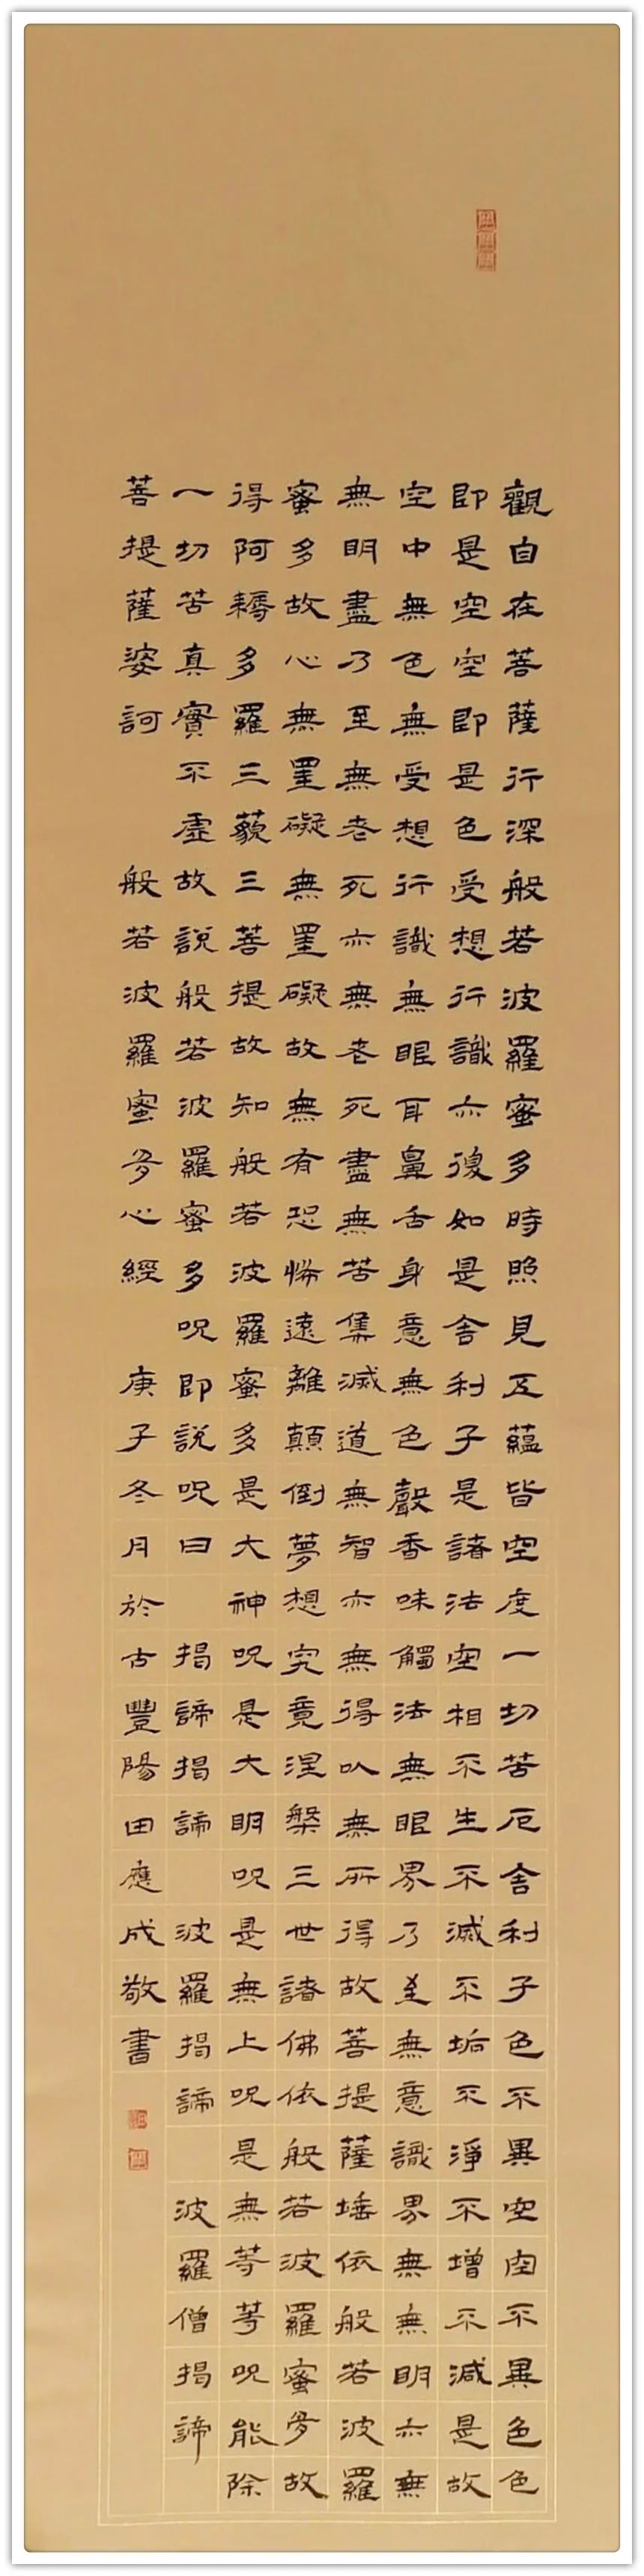 觀自在菩薩行深般若波羅蜜多時照見五蘊皆空度一切苦厄舍利子色不異空空不異色色
即是空空即是色受想行識亦復如是舍利子是諸法空相不生不滅不垢不淨不增不減是故
空中無色無受想行識無眼耳鼻舌身意無色聲香味觸法無眼界乃至無意識界無無明亦無
無明盡乃至無老死亦無老死盡無苦集滅道無智亦無得以無所得故菩提薩埵依般若波羅
蜜多故心無罣礙無罣礙故無有恐怖遠離顛倒夢想究竟涅槃三世諸佛依般若波羅蜜多故
得阿耨多羅三藐三菩提故知般若波羅蜜多是大神呪是大明呪是無上呪是無等等呪能除
一切苦真實不虛故說般若波羅蜜多呪即說呪曰 揭諦揭諦 波羅揭諦 波羅僧揭諦
菩提薩婆訶 般若波羅蜜多心經 庚子冬月於古豐陽田應成敬書